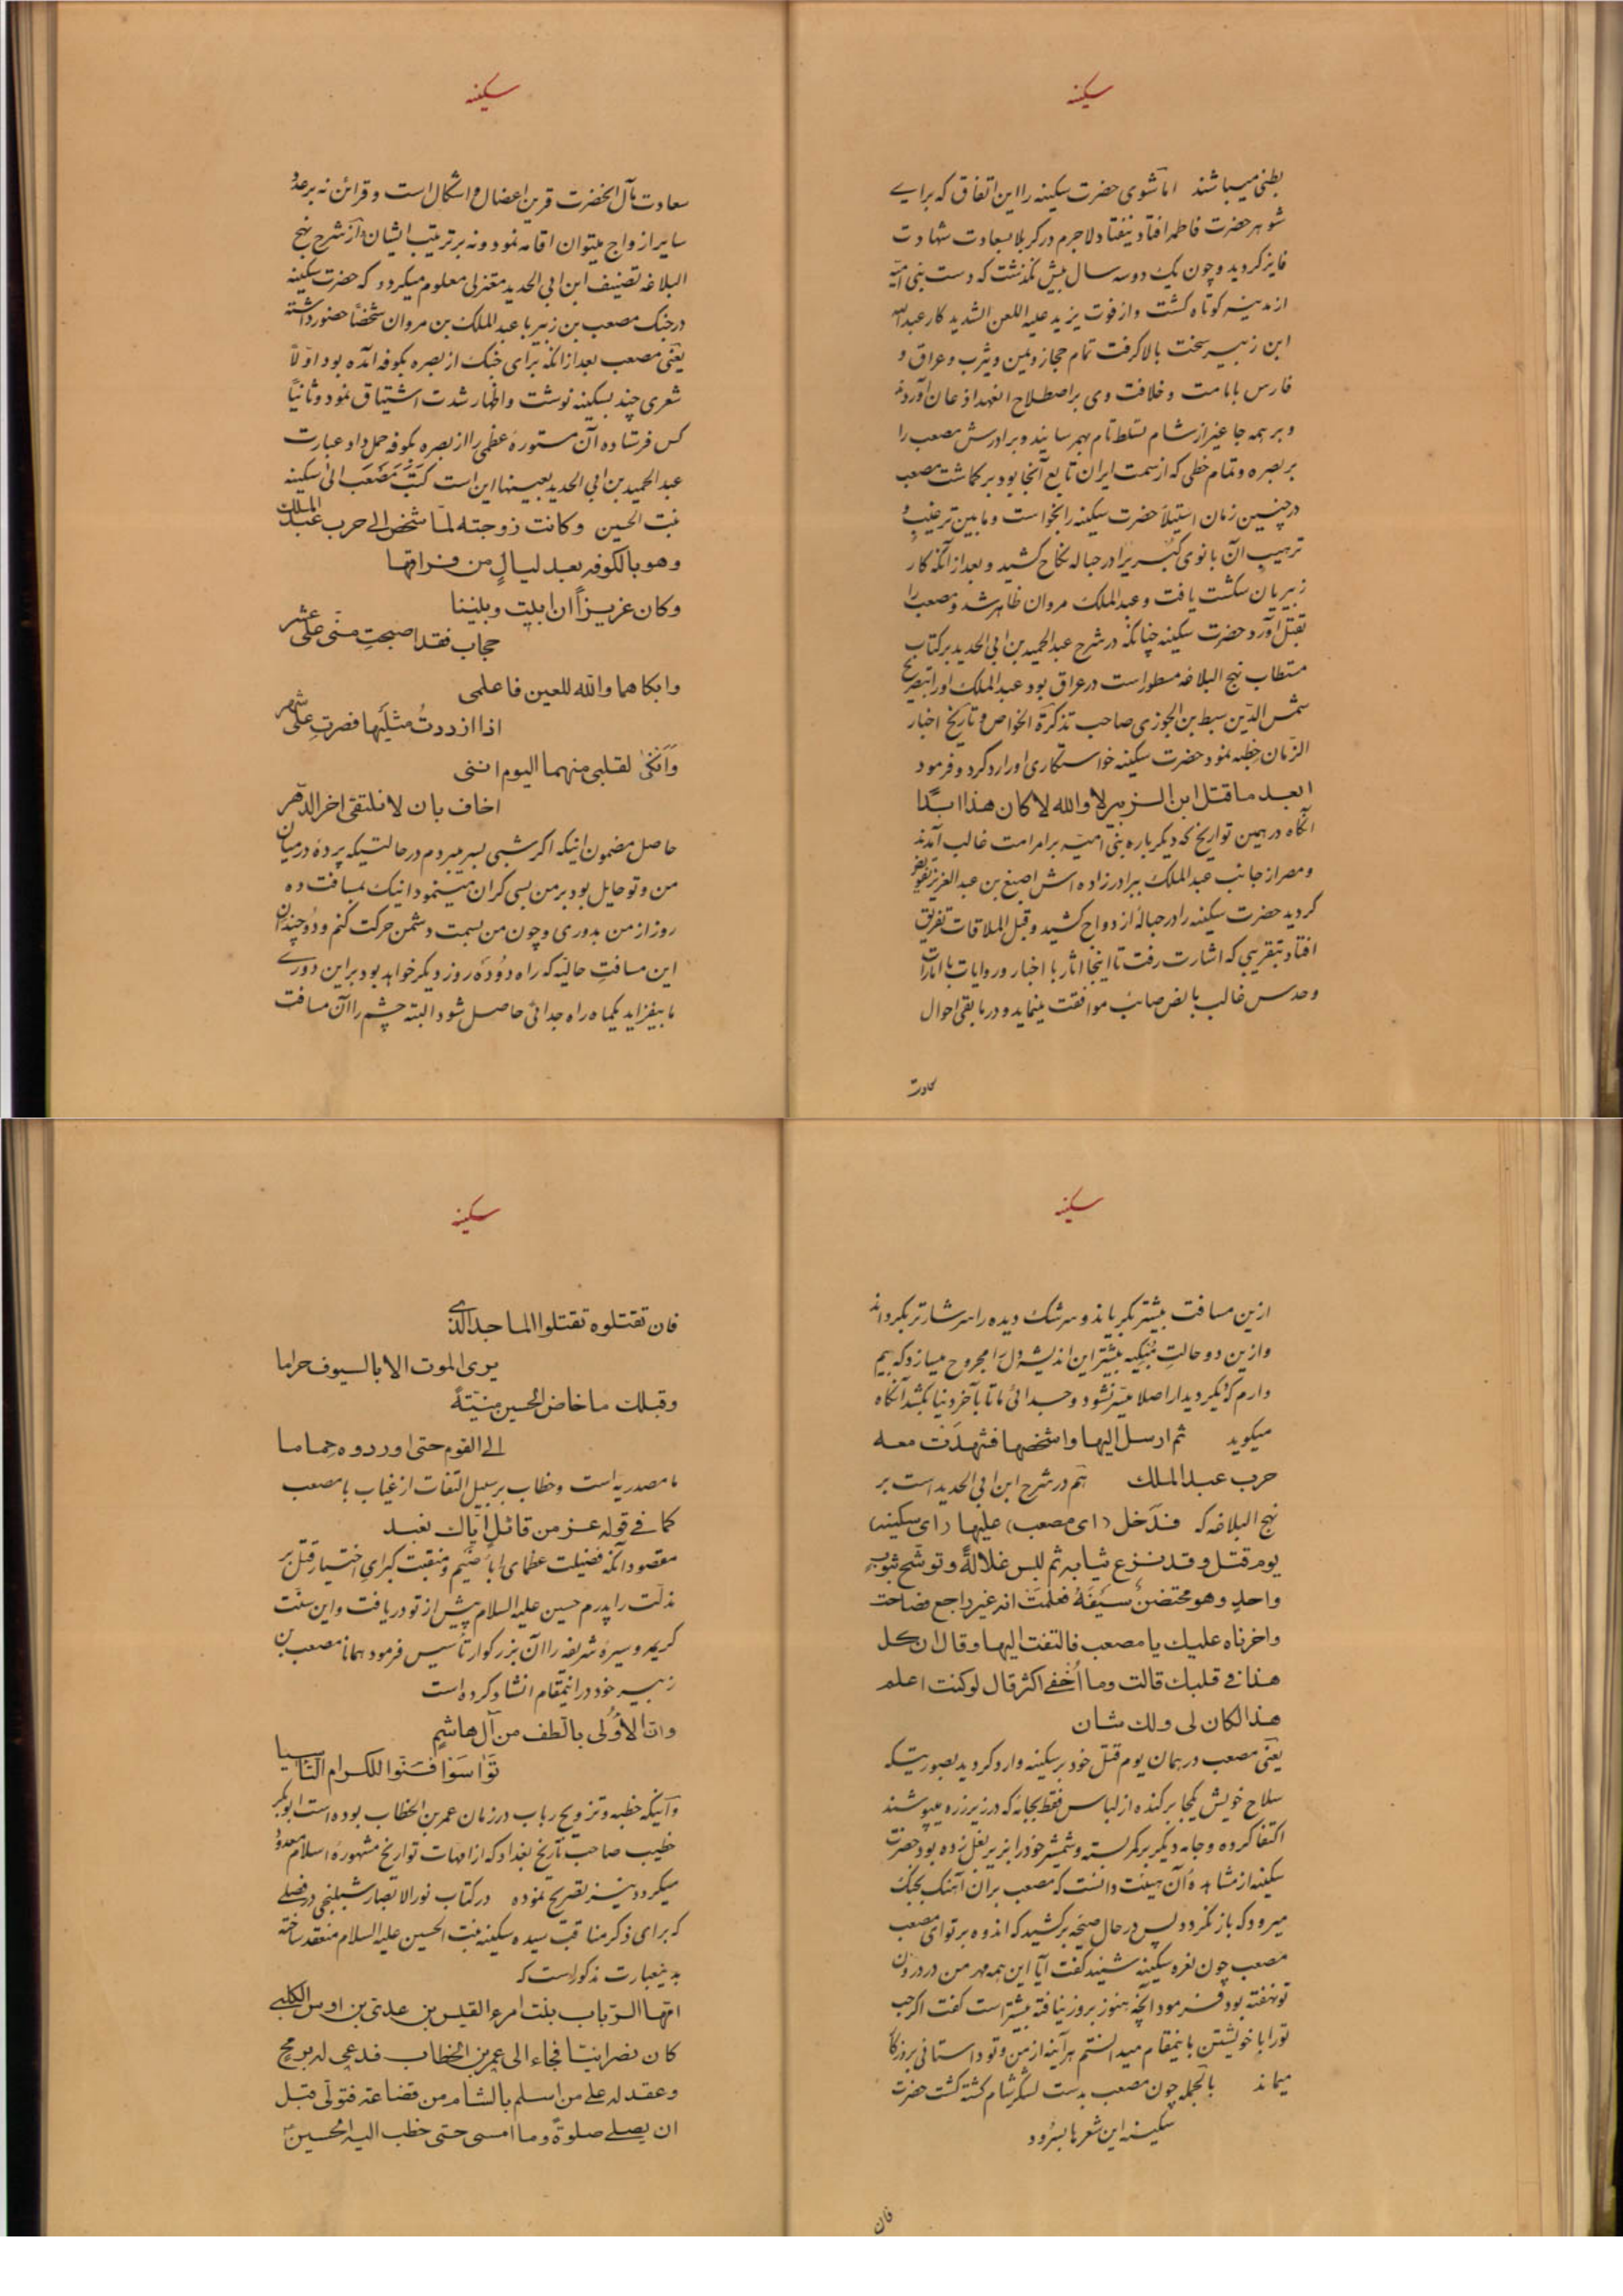 سکینه
بطنی میباشند اما شوی حضرت سکینه را این اتفاق که برای
شوهر حضرت فاطمه افتاد نیفتاد لاجرم در کربلا بسعادت شهادت
فایز کردید و چون یک دو سه سال بیش نگذشت که دست بنی امیّه
از مدینه کوتاه کشت و از فوت یزید علیه اللعن الشدید کار عبدالله
ابن زبیر سخت بالا کرفت تمام حجاز و یمن و یثرب و عراق و
فارس بامامت و خلافت وی بر اصطلاح انعهد اذعان آوردند
و بر همه جا غیر از شام تسلط تام بهم رسانید و برادرش مصعب را
بر بصره و تمام خطی که از سمت ایران تابع آنجا بود بر کماشت مصعب
در چنین زمان استیلا حضرت سکینه را بخواست و ما بین ترغیب و
ترهیب آن بانوی کبری را در حباله نکاح کشید و بعد از آنکه کار
زبیریان شکست یافت و عبدالملک مروان ظاهر شد و مصعب را
بقتل آورد حضرت سکینه چنانکه در شرح عبدالحمید بن ابی الحدید بر کتاب
مستطاب نهج البلاغه مسطور است در عراق بود عبدالملک او را بتصریح
شمس الدّین سبط بن الجوزی صاحب تذکرة الخواص و تاریخ اخبار
الزمان خطبه نمود حضرت سکینه خواستکاری او را رد کرد و فرمود
ابعد ما قتل ابن الزبیر لا والله لا کان هذا ابدًا
آنگاه در همین تواریخ که دیکرباره بنی امیّه بر امر امت غالب آمدند
و مصر از جانب عبدالملک ببرادرزاده اش اصبغ بن عبدالعزیز تفویض
کردید حضرت سکینه را در حبالهٔ ازدواج کشید و قبل الملاقات تفریق
افتاد بتقریبی که اشارت رفت تا اینجا اثار با اخبار و روایات با امارات
و حدس غالب با نص صائب موافقت مینماید و در ما بقی احوال
سکینه
سعادت مآل انحضرت قرین اعضال و اشکال است و قرائن نه بر عدد
سایر ازواج میتوان اقامه نمود و نه بر ترتیب ایشان و از شرح نهج
البلاغه تصنیف ابن ابی الحدید معتزلی معلوم میکردد که حضرت سکینه
در جنک مصعب بن زبیر با عبدالملک بن مروان شخصًا حضور داشته
یعنی مصعب بعد از انکه برای جنک از بصره بکوفه آمده بود اوّلاً
شعری چند بسکینه نوشت و اظهار شدت اشتیاق نمود و ثانیًا
کس فرستاده آن مستورهٔ عظمی را از بصره بکوفه حمل داد و عبارت
عبدالحمید بن ابی الحدید بعینها این است کتب مصعب الی سکینه
بنت الحسین وکانت زوجته لمّا شخص الی حرب عبد الملک
وهو بالکوفه بعد لیالٍ من فراقها
وکان عزیزاً ان ابیت وبیننا
حجاب فقد اصبحتِ منّی علی عشر
وابکاهما والله للعین فاعلمی
اذا ازددتُ مثلیها فصرتِ علی شهر
وَاَنکیٰ لقلبی منهما الیوم اننی
اخاف بان لا نلتقی اخر الدّهر
حاصل مضمون اینکه اکر شبی بسر میبردم در حالتیکه پردهٔ در میان
من و تو حایل بود بر من بسی کران مینمود اینک بمسافت ده
روز از من بدوری و چون من بسمت دشمن حرکت کنم و دو چندان
این مسافتِ حالیّه که راه دو ده روز دیکر خواهد بود بر این دوری
ما بیفزاید یکماه راه جدائی حاصل شود البته چشم را آن مسافت
سکینه
از این مسافت بیشتر بکریاند و سرشک دیده را سرشارتر بکرداند
و از این دو حالتِ مُبکیه بیشتر این اندیشه دل را مجروح میسازد که بیم
دارم که دیکر دیدار اصلا میّسر نشود و جدائی ما تا بآخر دنیا بکشد آنکاه
میکوید ثم ارسل الیها واشخصها فشهدَت معه
حرب عبد الملک هم در شرح ابن ابی الحدید است بر
نهج البلاغه که فدَخل (ای مصعب) علیها (ای سکینه)
یوم قتل وقد نزع ثیابه ثم لبس غلالةً وتوشّح بثوبٍ
واحدٍ وهو محتضنٌ سَیفَهُ فعلمَت انه غیر راجع فصاحت
واحزناه علیك یا مصعب فالتفت الیها وقال ان کل
هذا فی قلبك قالت وما اُخفی اکثر قال لو کنت اعلم
هذا لکان لی ولك شان
یعنی مصعب در همان یوم قتل خود بر سکینه وارد کردید بصورتیکه
سلاح خویش یکجا بر کنده از لباس فقط بجامهٔ که در زیر زره میپوشند
اکتفا کرده و جامه دیکر بر کمر بسته و شمشیر خود را بزیر بغل زده بود حضرت
سکینه از مشاهدهٔ آن هیئت دانست که مصعب بر ان آهنک بجنک
میرود که باز نکردد پس در حال صیحه بر کشید که اندوه بر تو ای مصعب
مصعب چون نعره سکینه شنید کفت آیا این همه مهر من در درون
تو نهفته بود فرمود آنچه هنوز بروز نیافته بیشتر است کفت اکر حب
تو را با خویشتن باینمقام میدانستم هر آینه از من و تو داستانی بروزکار
میماند بالجمله چون مصعب بدست لشکر شام کشته کشت حضرت
سکینه این شعرها بسرود
فان
سکینه
فان تقتلوه تقتلوا الماجد الذی
یری الموت الا بالسیوف حراما
وقبلك ما خاض الحسین منیّةً
الی القوم حتی اوردوه حِماما
ما مصدریه است و خطاب بر سبیل التفات از غیاب با مصعب
کما فی قوله عز من قائلٍ ایّاك نعبد
مقصود آنکه فضیلت عظمای اباء ضَیم و منقبت کبرای اختیار قتل بر
مذلّت را پدرم حسین علیه السلام پیش از تو دریافت و این سنّت
کریمه و سیرهٔ شریفه را آن بزرکوار تأسیس فرمود همانا مصعب بن
زبیر خود در اینمقام انشاد کرده است
وان الاُولی بالطف من آل هاشمٍ
تَوٰاسَوْا فسَنّوا للکرام التاسیا
و آنیکه خطبه و تزویج رباب در زمان عمر بن الخطاب بوده است ابوبکر
خطیب صاحب تاریخ بغداد که از امهات تواریخ مشهورهٔ اسلام معدود
میکردد نیز تصریح نموده در کتاب نور الابصار شبلنجی در فصلی
که برای ذکر مناقب سیده سکینه بنت الحسین علیه السلام منعقد ساخته
بدینعبارت مذکور است که
امّها الرّباب بنت امرء القیس بن عدیّ بن اوس الکلبی
کان نصرانیًّا فجاء الی عمر بن الخطاب فدعی له برمح
وعقد له علی من اسلم بالشام من قضاعة فتولّی قبل
ان یصلی صلوةً وما امسی حتی خطب الیه الحسین